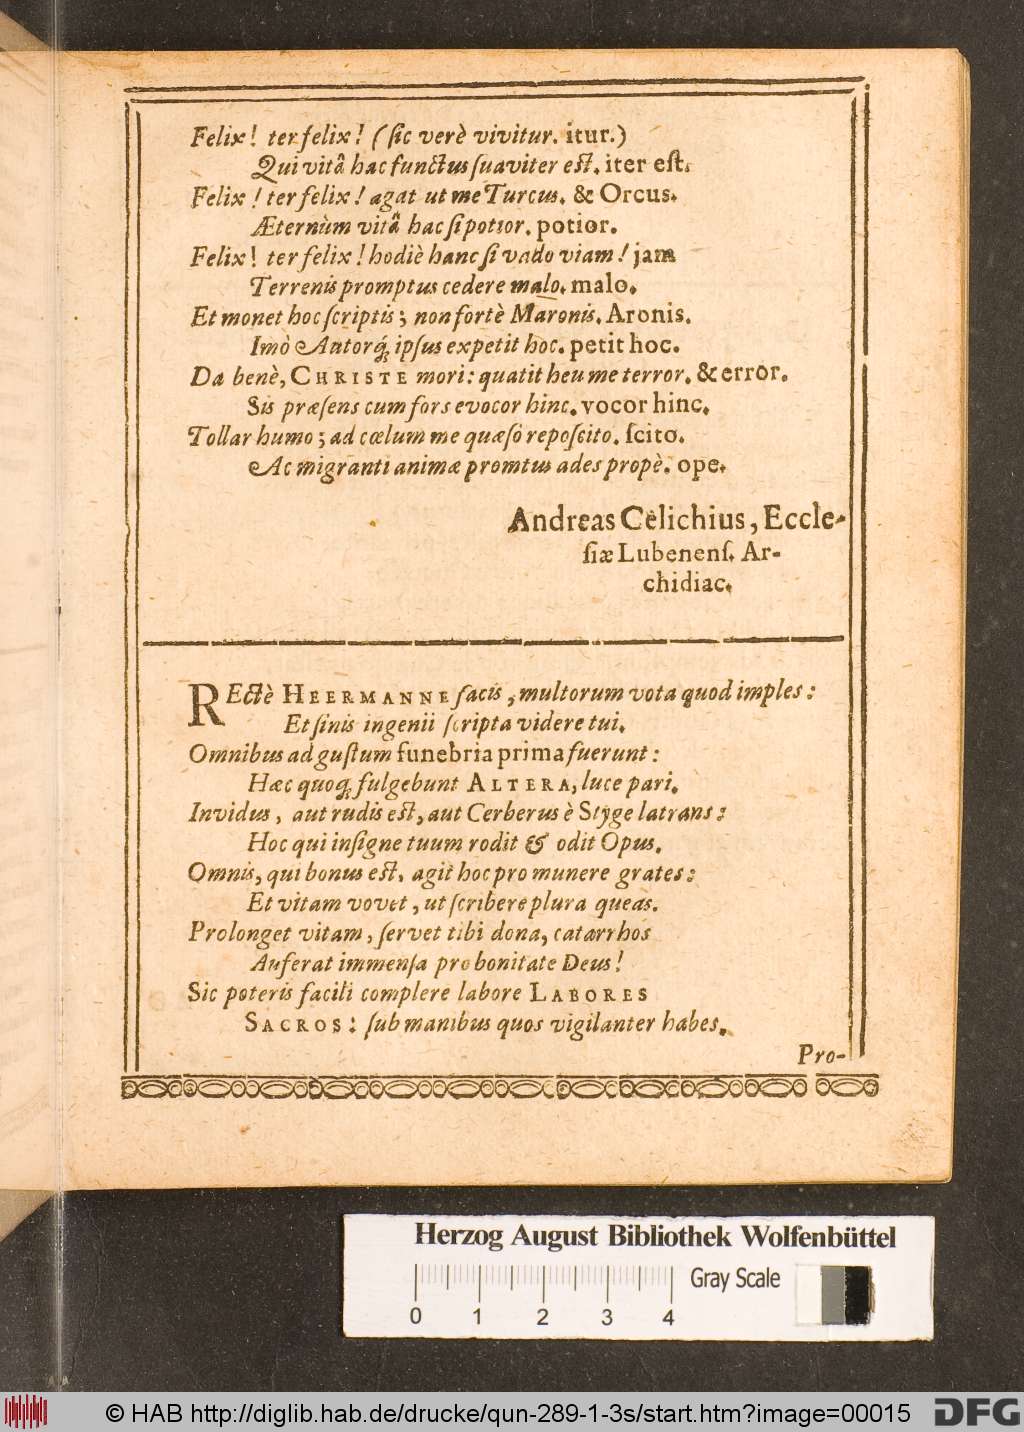 Felix! ter felix! (ſic verè vivitur. itur.)
Qui vitâ hac functus ſuaviter eſt. iter eſt.
Felix! ter felix! agat ut me Turcus. & Orcus.
Æternùm vitâ hac ſi potior. potior.
Felix! ter felix! hodiè hanc ſi vado viam! jam
Terrenis promptus cedere malo. malo.
Et monet hoc ſcriptis; non fortè Maronis. Aronis.
Imò Autorq́; ipſus expetit hoc. petit hoc.
Da benè, CHRISTE mori: quatit heu me terror. & error.
Sis præſens cum fors evocor hinc. vocor hinc.
Tollar humo; ad cœlum me quæſo repoſcito. ſcito.
Ac migranti animæ promtus ades propè. ope.
Andreas Celichius, Eccle-
ſiæ Lubenenſ. Ar-
chidiac.
REctè HEERMANNE facis, multorum vota quod imples:
Et ſinis ingenii ſcripta videre tui.
Omnibus ad guſtum funebria prima fuerunt:
Hæc quoq; fulgebunt ALTERA, luce pari.
Invidus, aut rudis eſt, aut Cerberus è Styge latrans:
Hoc qui inſigne tuum rodit & odit Opus.
Omnis, qui bonus eſt, agit hoc pro munere grates:
Et vitam vovet, ut ſcribere plura queas.
Prolonget vitam, ſervet tibi dona, catarrhos
Auferat immenſa pro bonitate Deus!
Sic poteris facili complere labore LABORES
SACROS: ſub manibus quos vigilanter habes.
Pro-
Herzog August Bibliothek Wolfenbüttel
Gray Scale
0 1 2 3 4
© HAB http://diglib.hab.de/drucke/qun-289-1-3s/start.htm?image=00015
DFG